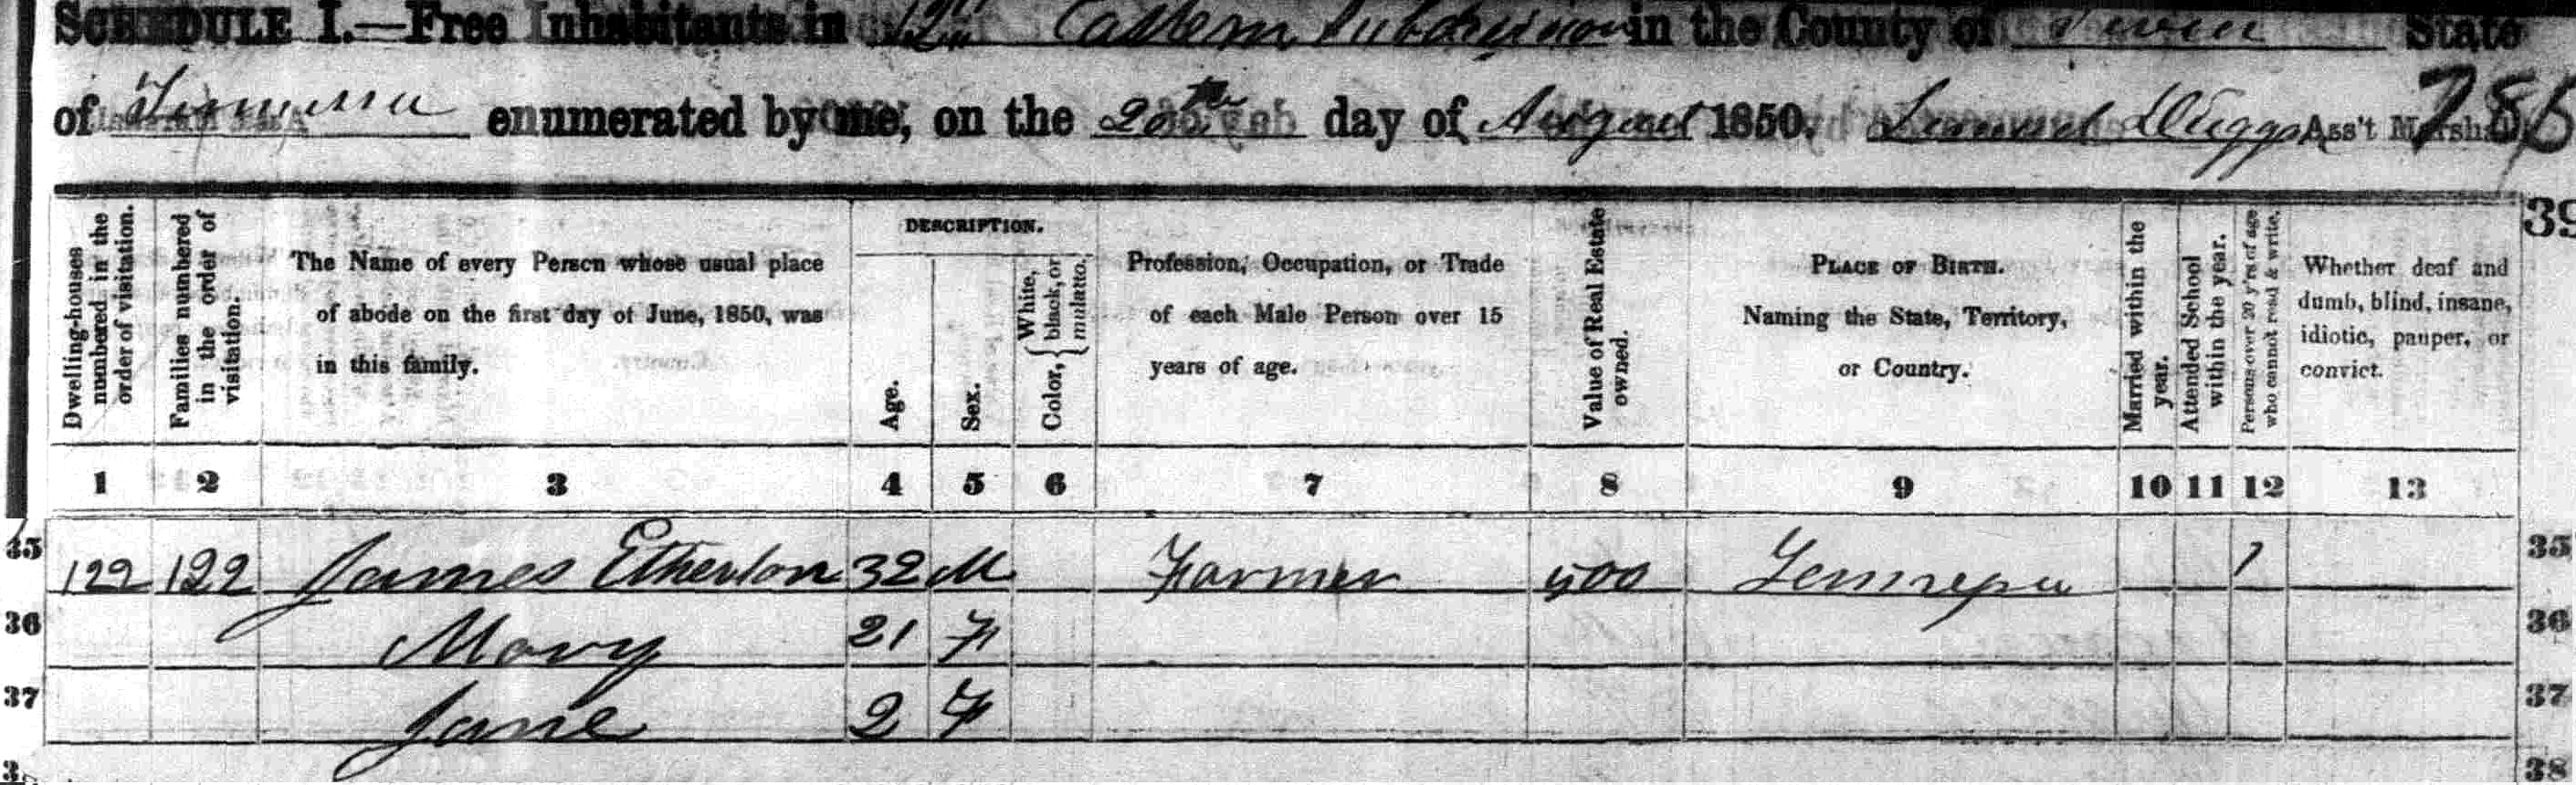 SCHEDULE I.—Free Inhabitants in 12th Eastern Subdivision in the County of State
of Tennessee enumerated by me, on the 20th day of August 1850. Ass't Marshal. 786
39
Dwelling-houses numbered in the order of visitation.
Families numbered in the order of visitation.
The Name of every Person whose usual place
of abode on the first day of June, 1850, was
in this family.
DESCRIPTION.
Age.
Sex.
Color, { White, black, or mulatto.
Profession, Occupation, or Trade
of each Male Person over 15
years of age.
Value of Real Estate owned.
PLACE OF BIRTH.
Naming the State, Territory,
or Country.
Married within the year.
Attended School within the year.
Persons over 20 y'rs of age who cannot read & write.
Whether deaf and
dumb, blind, insane,
idiotic, pauper, or
convict.
1 2 3 4 5 6 7 8 9 10 11 12 13
35 122 122 James Etherton 32 M Farmer 500 Tennessee 1 35
36 Mary 21 F 36
37 Jane 2 F 37
38